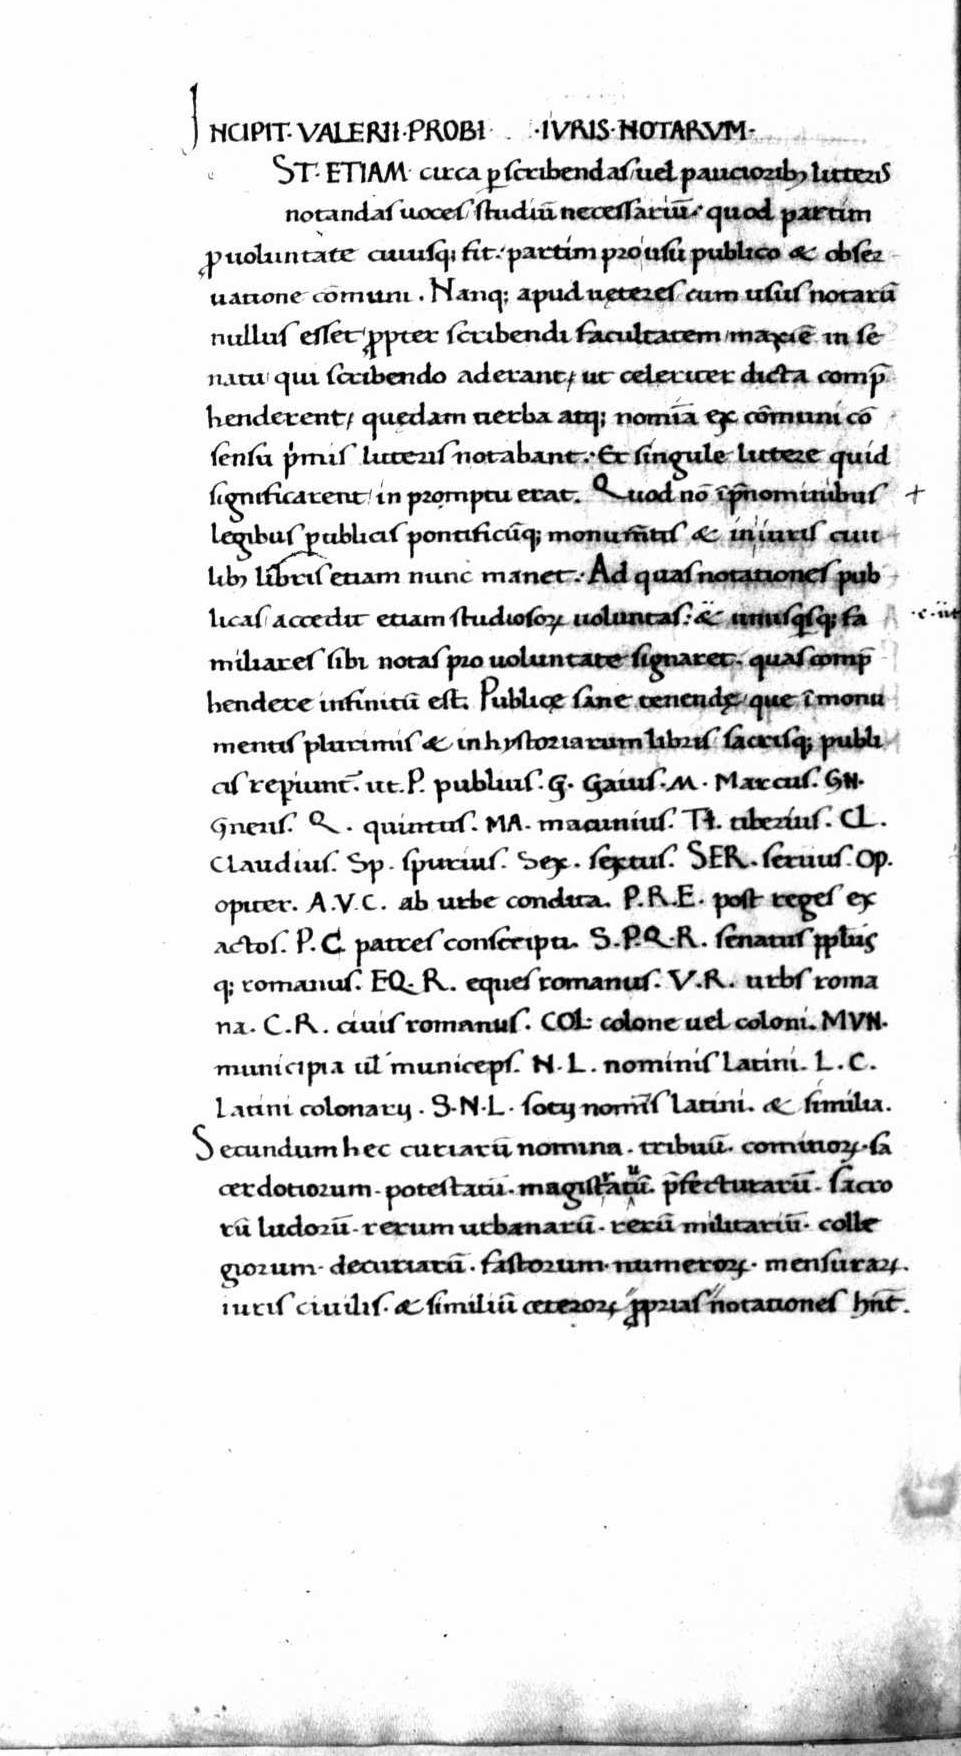 INCIPIT· VALERII·PROBI · ·IVRIS·NOTARVM·
ST· ETIAM circa ꝑscribendas uel paucioribꝫ litteris
notandas uoces studiū necessariū: quod partim
ꝓ uoluntate cuiusq; fit: partim pro usu publico & obser
uatione cōmuni . Nanq; apud ueteres cum usus notarū
nullus esset ꝓpter scribendi facultatem maxīe in se
natu qui scribendo aderant, ut celeriter dicta comp̄
henderent, quedam uerba atq; nomīa ex cōmuni cō
sensu pⁱmis litteris notabant. Et singule littere quid
significarent in promptu erat. Quod nō ī p̄nominibus +
legibus publicis pontificūq; monum̄tis & in iuris ciui
libꝫ libris etiam nunc manet. Ad quas notationes pub
licas accedit etiam studiosoꝝ uoluntas: & unusqⁱsq; fa
miliares sibi notas pro uoluntate signaret. quas comp̄
hendere infinitū est. Publicę sane tenendę que ī monu
mentis plurimis & in hystoriarum libris sacrisq; publi
cis repiunt̄. ut. P. publius. G. Gaius. M. Marcus. GN.
Gneus. Q. quintus. MA. macinius. TI. tiberius. CL.
Claudius. Sp. spurius. Sex. sextus. SER. seruus. Op.
opiter. A.V.C. ab urbe condita. P.R.E. post reges ex
actos. P.C. patres conscripti. S.P.Q.R. senatus pp̄lus
q; romanus. EQ. R. eques romanus. V.R. urbs roma
na. C.R. ciuis romanus. COL: colone uel coloni. MVN.
municipia ul̄ municeps. N.L. nominis latini. L.C.
Latini colonarij. S.N.L. socij nom̄is latini. & similia.
Secundum hec curiarū nomina. tribuū. comitioꝝ. sa
cerdotiorum. potestatū. magistratuū. p̄fecturarū. sacro
rū ludorū. rerum urbanarū. rerū militariū. colle
giorum. decuriarū. fastorum. numeroꝝ. mensuraꝝ.
iuris ciuilis. & similiū ceteroꝝ ꝓprias notationes hn̄t.